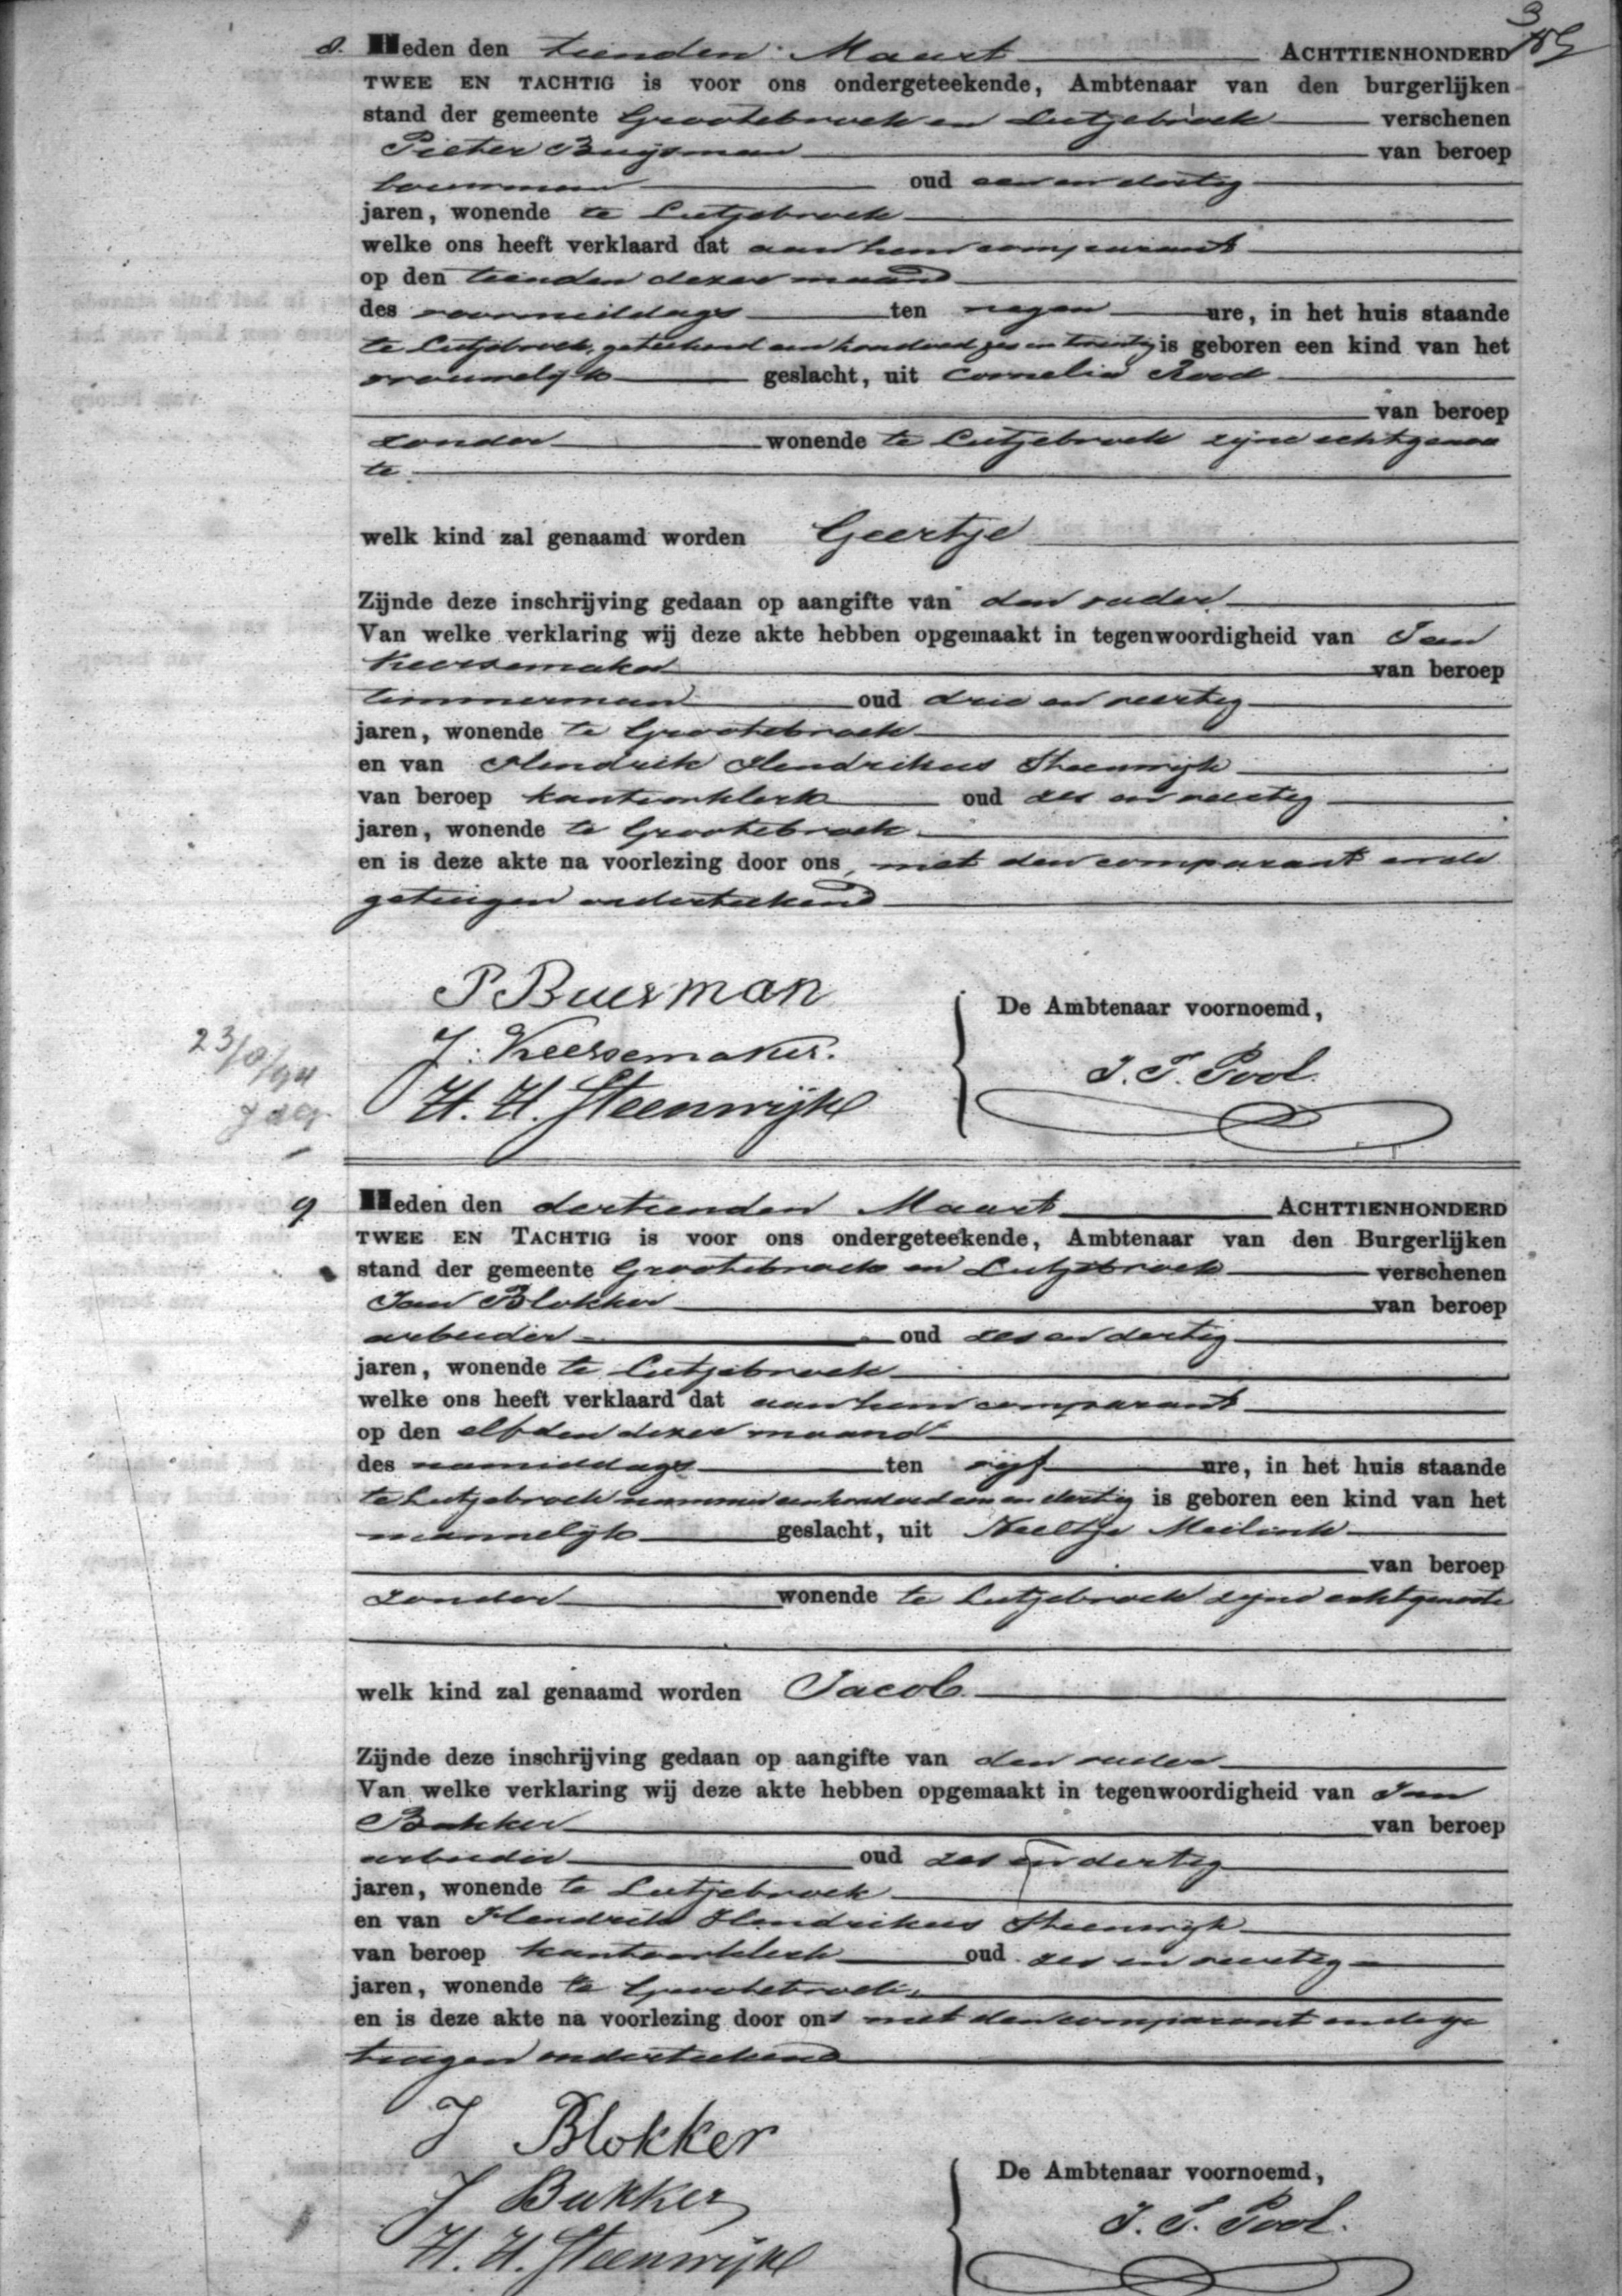 3
8. Heden den tienden Maart ACHTTIENHONDERD
TWEE EN TACHTIG is voor ons ondergeteekende, Ambtenaar van den burgerlijken
stand der gemeente Grootebroek en Lutjebroek verschenen
Pieter Buijsman van beroep
bouwman oud een en dertig
jaren, wonende te Lutjebroek
welke ons heeft verklaard dat aan hem comparant
op den tienden dezer maand
des voormiddags ten negen ure, in het huis staande
te Lutjebroek, geteekend een honderd zes en twintig is geboren een kind van het
vrouwelijk geslacht, uit Cornelia Rood
van beroep
zonder wonende te Lutjebroek zijne echtgenoo
te
welk kind zal genaamd worden Geertje
Zijnde deze inschrijving gedaan op aangifte van den vader
Van welke verklaring wij deze akte hebben opgemaakt in tegenwoordigheid van Jan
Keersemaker van beroep
timmerman oud drie en veertig
jaren, wonende te Grootebroek
en van Hendrik Hendrikus Steenwijk
van beroep kantoorklerk oud zes en veertig
jaren, wonende te Grootebroek
en is deze akte na voorlezing door ons, met den comparant en de
getuigen onderteekend
P Buisman
De Ambtenaar voornoemd,
J. Keersemaker.
J. T. Pool.
H. H. Steenwijk
9 Heden den dertienden Maart ACHTTIENHONDERD
TWEE EN TACHTIG is voor ons ondergeteekende, Ambtenaar van den Burgerlijken
stand der gemeente Grootebroek en Lutjebroek verschenen
Jan Blokker van beroep
arbeider oud zes en dertig
jaren, wonende te Lutjebroek
welke ons heeft verklaard dat aan hem comparant
op den elfden dezer maand
des namiddags ten vijf ure, in het huis staande
te Lutjebroek nummer eenhonderd een en dertig is geboren een kind van het
mannelijk geslacht, uit Neeltje Meilink
van beroep
zonder wonende te Lutjebroek zijne echtgenoote
welk kind zal genaamd worden Jacob
Zijnde deze inschrijving gedaan op aangifte van den vader
Van welke verklaring wij deze akte hebben opgemaakt in tegenwoordigheid van Jan
Bakker van beroep
arbeider oud zes en dertig
jaren, wonende te Lutjebroek
en van Hendrik Hendrikus Steenwijk
van beroep kantoorklerk oud zes en veertig
jaren, wonende te Grootebroek
en is deze akte na voorlezing door ons met den comparant en de ge
tuigen onderteekend
J Blokker
De Ambtenaar voornoemd,
J Bakker
J. T. Pool.
H. H. Steenwijk